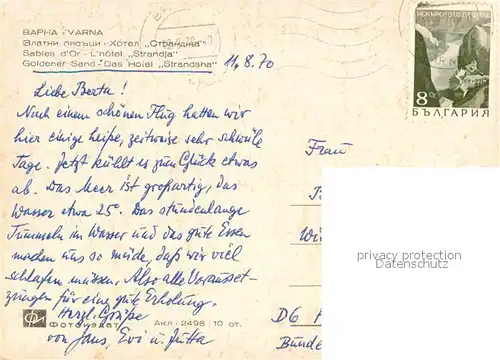 ВАРНА - VARNA
Златни пясъци - Хотел „Странджа"
Sables d'Or - L'hôtel „Strandja"
Goldener Sand - Das Hotel „Strandsha"
11.8.70
8
БЪЛГАРИЯ
Liebe Berta!
Nach einem schönen Flug hatten wir
hier einige heiße, zeitweise sehr schwüle
Tage. Jetzt kühlt es zum Glück etwas
ab. Das Meer ist großartig, das
Wasser etwa 25°. Das stundenlange
Tummeln im Wasser und das gute Essen
machen uns so müde, daß wir viel
schlafen müssen. Also alle Vorausset-
zungen für eine gute Erholung.
Herzl. Grüße
von Jans, Evi u. Jutta
Frau
privacy protection
Datenschutz
D6
ФОТОИЗДАТ Акл - 2498 10 от.